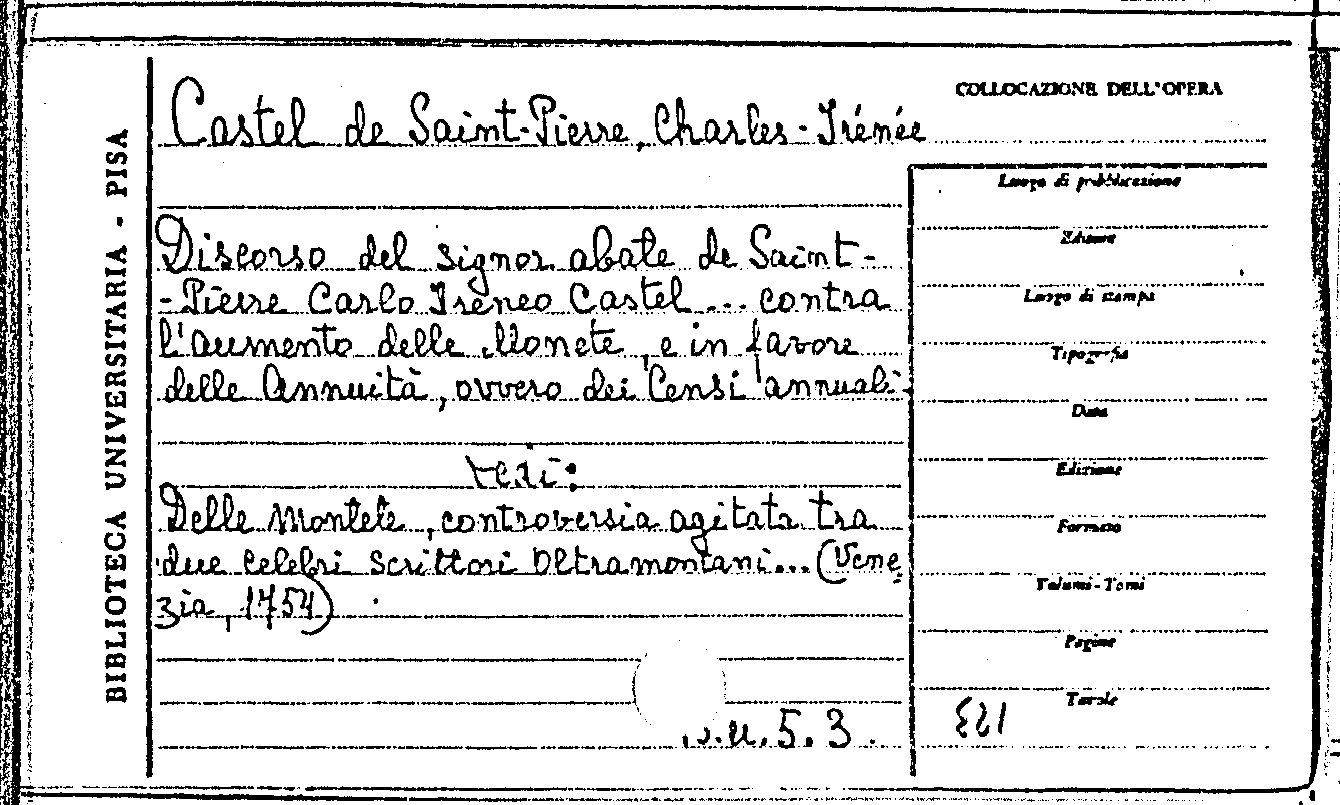 BIBLIOTECA UNIVERSITARIA - PISA
COLLOCAZIONE DELL'OPERA
Castel de Saint-Pierre, Charles-Irénée
Discorso del signor abate de Saint-
-Pierre Carlo Ireneo Castel ... contra
l'aumento delle Monete, e in favore
delle Annuità, ovvero dei Censi annuali.
vedi:
Delle Montete, controversia agitata tra
due celebri scrittori oltramontani... (Vene
zia, 1754)
.u.5.3.
Luogo di pubblicazione
Editore
Luogo di stampa
Tipografia
Data
Edizione
Formato
Volumi-Tomi
Pagine
Tavole